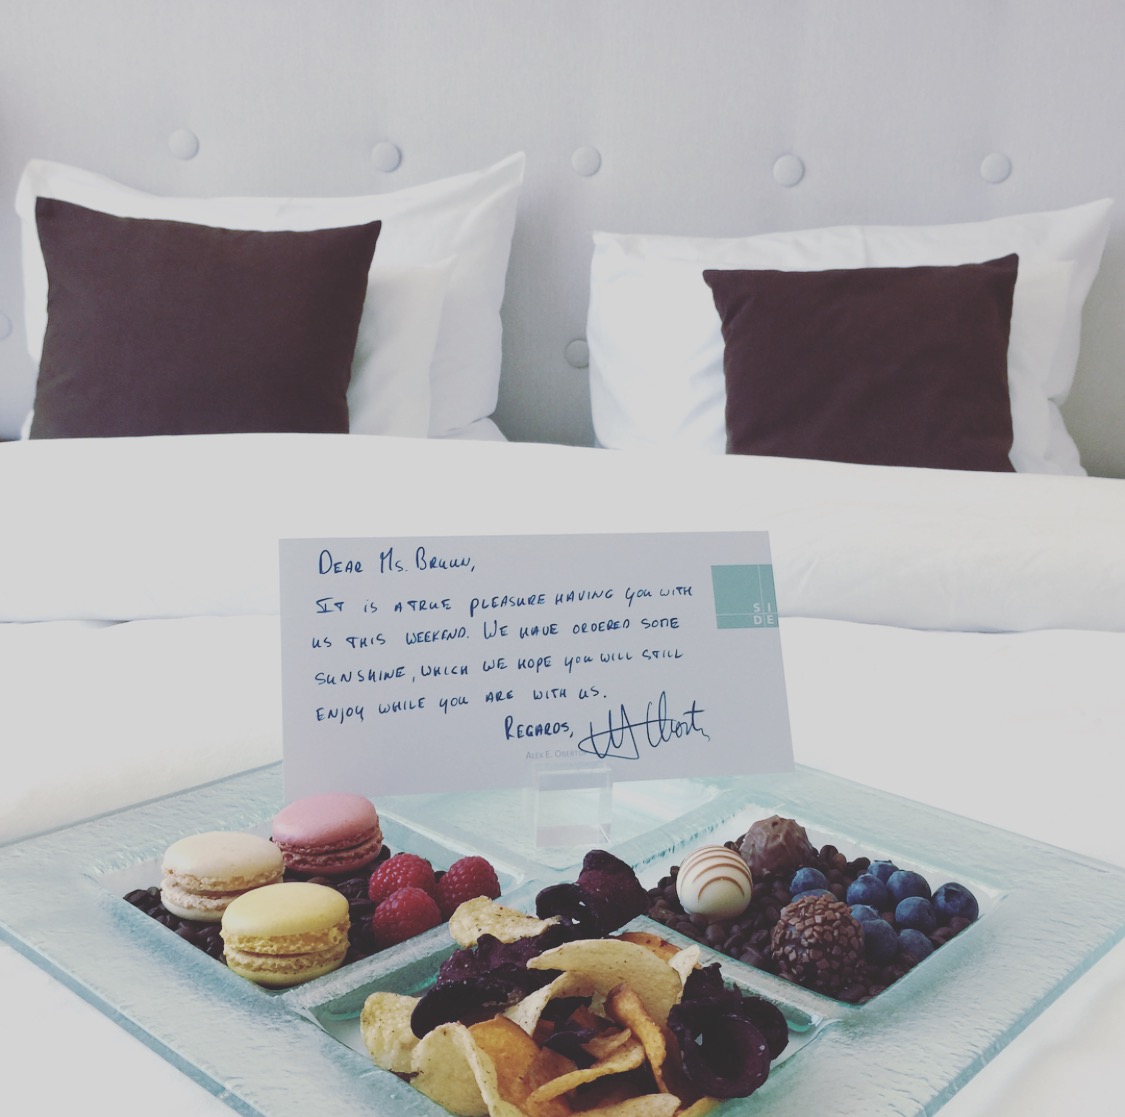 DEAR MS. BRUUN,
IT IS A TRUE PLEASURE HAVING YOU WITH
US THIS WEEKEND. WE HAVE ORDERED SOME
SUNSHINE, WHICH WE HOPE YOU WILL STILL
ENJOY WHILE YOU ARE WITH US.
REGARDS,
ALEX E.
SI
DE